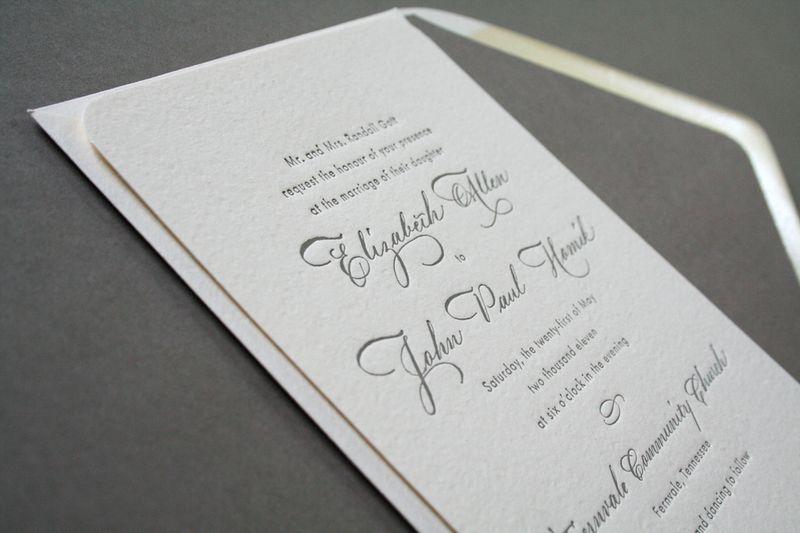 Mr. and Mrs. Randall Goff
request the honour of your presence
at the marriage of their daughter
Elizabeth Allen
to
John Paul Homik
Saturday, the twenty-first of May
two thousand eleven
at six o'clock in the evening
Fernvale Community Church
Fernvale, Tennessee
and dancing to follow